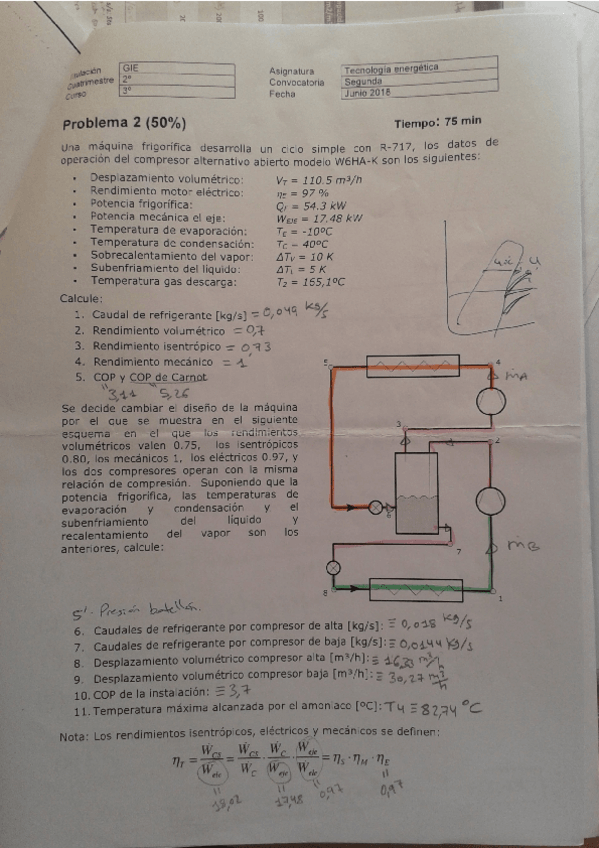 Titulación GIE
Cuatrimestre 2º
Curso 3º
Asignatura Tecnología energética
Convocatoria Segunda
Fecha Junio 2018
Problema 2 (50%)
Tiempo: 75 min
Una máquina frigorífica desarrolla un ciclo simple con R-717, los datos de
operación del compresor alternativo abierto modelo W6HA-K son los siguientes:
• Desplazamiento volumétrico: VT = 110.5 m³/h
• Rendimiento motor eléctrico: ηE = 97 %
• Potencia frigorífica: Qf = 54.3 kW
• Potencia mecánica el eje: WEJE = 17.48 kW
• Temperatura de evaporación: TE = -10ºC
• Temperatura de condensación: TC = 40ºC
• Sobrecalentamiento del vapor: ΔTV = 10 K
• Subenfriamiento del líquido: ΔTL = 5 K
• Temperatura gas descarga: T2 = 165,1ºC
Calcule:
1. Caudal de refrigerante [kg/s] = 0,049 kg/s
2. Rendimiento volumétrico = 0,7
3. Rendimiento isentrópico = 0,73
4. Rendimiento mecánico = 1
5. COP y COP de Carnot
3,11 5,26
Se decide cambiar el diseño de la máquina
por el que se muestra en el siguiente
esquema en el que los rendimientos
volumétricos valen 0.75, los isentrópicos
0.80, los mecánicos 1, los eléctricos 0.97, y
los dos compresores operan con la misma
relación de compresión. Suponiendo que la
potencia frigorífica, las temperaturas de
evaporación y condensación y el
subenfriamiento del líquido y
recalentamiento del vapor son los
anteriores, calcule:
5
4
ṁA
3
2
6
7
ṁB
8
1
5'- Presión botellón.
6. Caudales de refrigerante por compresor de alta [kg/s]: ≡ 0,018 kg/s
7. Caudales de refrigerante por compresor de baja [kg/s]: ≡ 0,0144 kg/s
8. Desplazamiento volumétrico compresor alta [m³/h]: ≡ 16,33 m³/h
9. Desplazamiento volumétrico compresor baja [m³/h]: ≡ 30,27 m³/h
10. COP de la instalación: ≡ 3,7
11. Temperatura máxima alcanzada por el amoniaco [ºC]: T4 ≡ 82,74 ºC
Nota: Los rendimientos isentrópicos, eléctricos y mecánicos se definen:
ηT = WCS / Wele = WCS / WC · WC / Weje · Weje / Wele = ηS · ηM · ηE
18,02 17,48 0,97 0,97